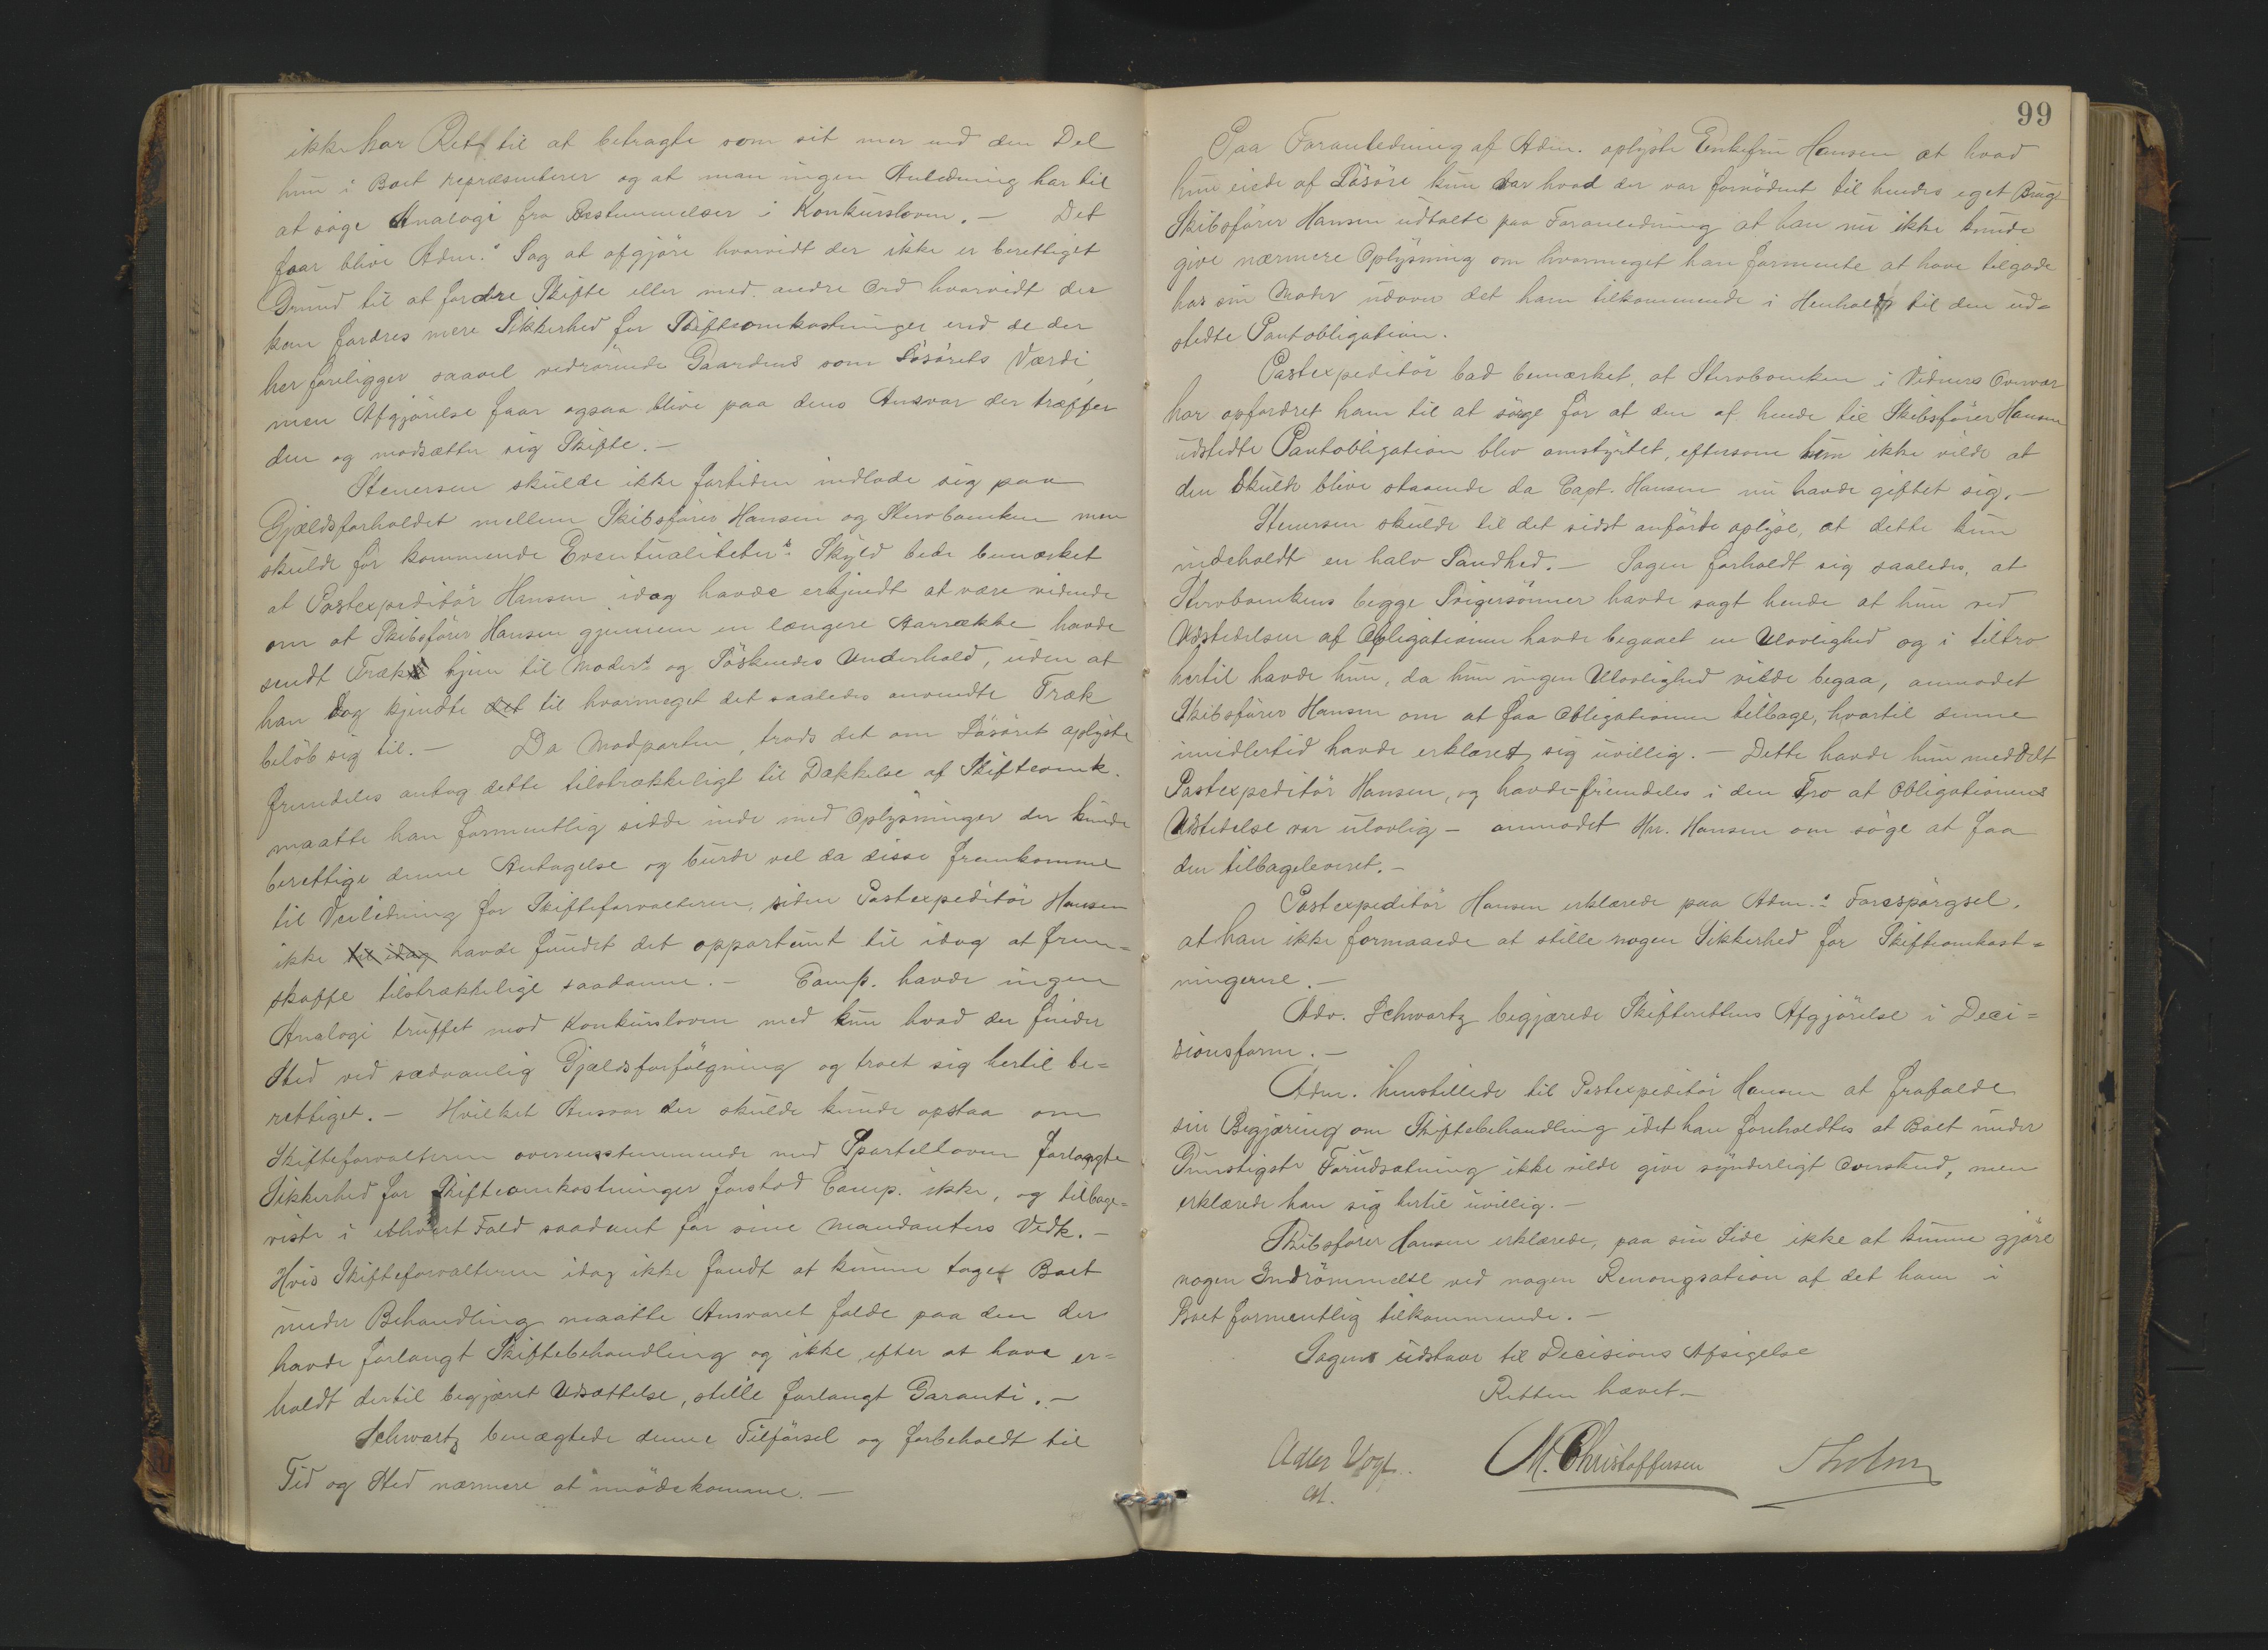 ikke har Ret til at betragte som sit mer end den Del
hun i Boet repræsenterer og at man ingen Anledning har til
at søge Analogi fra Bestemmelser i Konkursloven. — Det
faar blive Adm.s Sag at afgjøre hvorvidt der ikke er berettiget
Grund til at fordre Skifte eller med andre Ord hvorvidt der
kan fordres mere Sikkerhed for Skifteomkostninger end de der
her foreligger saavel vedrørende Gaardens som Løsørets Værdi,
men Afgjørelse faar ogsaa blive paa dens Ansvar der træffer
den og modsætter sig Skifte. —
Stenersen skulde ikke fortiden indlade sig paa
Gjældsforholdet mellem Skibsfører Hansen og Stervboenken men
skulde for kommende Eventualiteters Skyld bede bemærket
at Postexpeditør Hansen idag havde erkjendt at være vidende
om at Skibsfører Hansen gjennem en længere Aarrække havde
sendt Træk hjem til Moders og Søskendes Underhold, uden at
han dog kjendte det til hvormeget det saaledes anvendte Træk
beløb sig til. — Da Modparten, trods det om Løsøret oplyste
fremdeles antog dette tilstrækkeligt til Dækkelse af Skifteomk.
maatte han formentlig sidde inde med Oplysninger der kunde
berettige denne Antagelse og burde vel da disse fremkomme
til Veiledning for Skifteforvalteren, siden Postexpeditør Hansen
ikke til idag havde fundet det opportunt til idag at frem=
skaffe tilstrækkelige saadanne. — Comp. havde ingen
Analogi truffet mod Konkursloven med kun hvad der finder
Sted ved sædvanlig Gjældsforfølgning og troet sig hertil be=
rettiget. — Hvilket Ansvar der skulde kunde opstaa om
Skifteforvalteren overensstemmende med Sportelloven forlangte
Sikkerhed for Skifteomkostninger forstod Comp. ikke, og tilbage=
viste i ethvert Fald saadant for sine Mandanters Vedk. —
Hvis Skifteforvalteren idag ikke fandt at kunne taget Boet
under Behandling maatte Ansvaret falde paa den der
havde forlangt Skiftebehandling og ikke, efter at have er=
holdt dertil begjæret Udsættelse, stille forlangt Garanti. —
Schwartz benægtede denne Tilførsel og forbeholdt til
Tid og Sted nærmere at imødekomme. —
99
Paa Foranledning af Adm. oplyste Enkefru Hansen at hvad
hun eiede af Løsøre kun var hvad der var fornødent til hendes eget Brug
Skibsfører Hansen udtalte paa Foranledning at han nu ikke kunde
give nærmere Oplysning om hvormeget han formente at have tilgode
hos sin Moder udover det ham tilkommende i Henhold til den ud=
stedte Pantobligation.
Postexpeditør bad bemærket, at Stervboenken i Vidners Overvær
har opfordret ham til at sørge for at den af hende til Skibsfører Hansen
udstedte Pantobligation blev omstyrtet, eftersom hun ikke vilde at
den skulde blive staaende da Capt. Hansen nu havde giftet sig. —
Stenersen skulde til det sidst anførte oplyse, at dette kun
indeholdt en halv Sandhed. — Sagen forholdt sig saaledes, at
Stervboenkens begge Svigersønner havde sagt hende at hun ved
Udstedelsen af Obligationen havde begaaet en Ulovlighed og i tiltro
hertil havde hun, da hun ingen Ulovlighed vilde begaa, anmodet
Skibsfører Hansen om at faa Obligationen tilbage, hvortil denne
imidlertid havde erklæret sig uvillig. — Dette havde hun meddelt
Postexpeditør Hansen, og havde-fremdeles i den Tro at Obligationens
Udstedelse var ulovlig — anmodet Hr. Hansen om søge at faa
den tilbageleveret. —
Postexpeditør Hansen erklærede paa Adm.s Forespørgsel,
at han ikke formaaede at stille nogen Sikkerhed for Skifteomkost=
ningerne. —
Adv. Schwartz begjærede Skifterettens Afgjørelse i Deci=
sionsform. —
Adm. henstillede til Postexpeditør Hansen at frafalde
sin Begjæring om Skiftebehandling idet han foreholdtes at Boet under
Gunstigste Forudsætning ikke vilde give synderligt Overskud, men
erklærede han sig hertil uvillig. —
Skibsfører Hansen erklærede, paa sin Side ikke at kunne gjøre
nogen Indrømmelse ved nogen Renongsation af det ham i
Boet formentlig tilkommende. —
Sagens udstaar til Decisions Afsigelse
Retten hævet. —
Adler Vogt M. Christoffersen S Holm
cst.